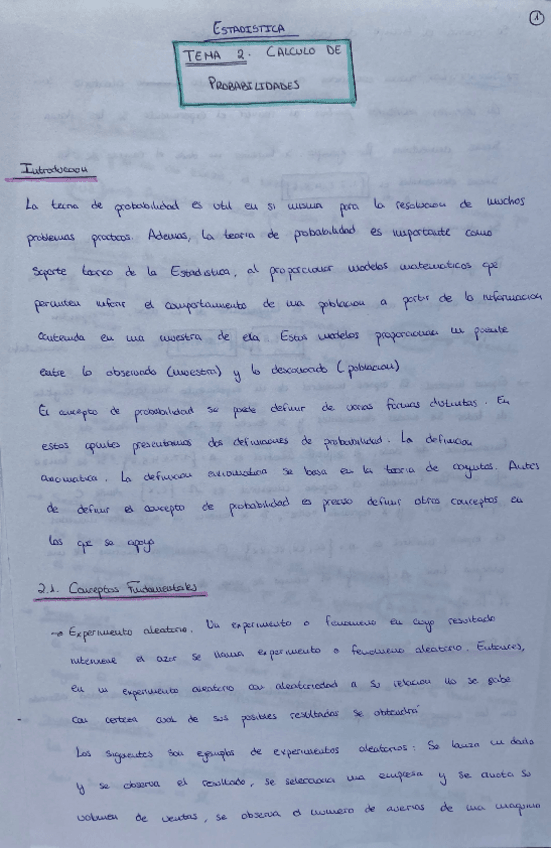 1
ESTADISTICA
TEMA 2. CALCULO DE
PROBABILIDADES
Introduccion
La teoria de probabilidad es util en si misma para la resolucion de muchos
problemas practicos. Ademas, la teoria de probabilidad es importante como
soporte teorico de la Estadistica, al proporcionar modelos matematicos que
permiten inferir el comportamiento de una poblacion a partir de la informacion
contenida en una muestra de ella. Estos modelos proporcionan un puente
entre lo observado (muestra) y lo desconocido (poblacion)
El concepto de probabilidad se puede definir de varias formas distintas. En
estos apuntes presentamos dos definiciones de probabilidad. La definicion
axiomatica. La definicion axiomatica se basa en la teoria de conjuntos. Antes
de definir el concepto de probabilidad es preciso definir otros conceptos en
los que se apoya
2.1. Conceptos Fundamentales
→ Experimento aleatorio. Un experimento o fenomeno en cuyo resultado
interviene el azar se llama experimento o fenomeno aleatorio. Entonces,
en un experimento aleatorio con aleatoriedad a su relacion no se sabe
con certeza cual de sus posibles resultados se obtendrá
Los siguientes son ejemplos de experimentos aleatorios: Se lanza un dado
y se observa el resultado, se selecciona una empresa y se anota su
volumen de ventas, se observa el numero de averias de una maquina